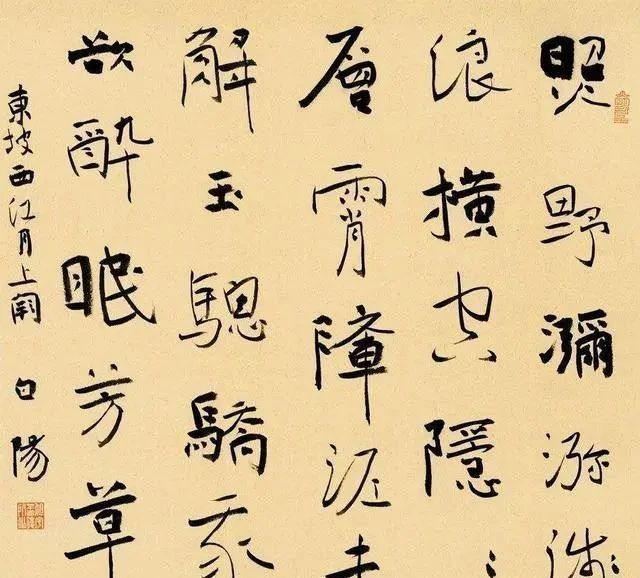 照野瀰㳽淺
浪橫空隱
層霄障泥未
解玉驄驕我
欲醉眠芳草
東坡西江月上闋 白陽